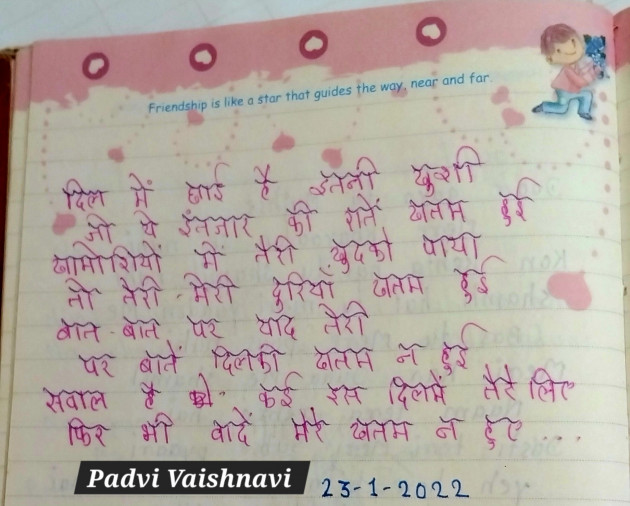 Friendship is like a star that guides the way, near and far.
दिल में छाई है इतनी खुशी
जो ये इंतजार की रातें खतम हुई
खामोशियों में तेरी खुदको पाया
तो तेरी मेरी दुरियाँ खतम हुई
बात-बात पर याद तेरी
पर बातें दिलकी खतम न हुई
सवाल है कई इस दिलमें तेरे लिए
फिर भी वादें मेरे खतम न हुए ...
Padvi Vaishnavi
23-1-2022